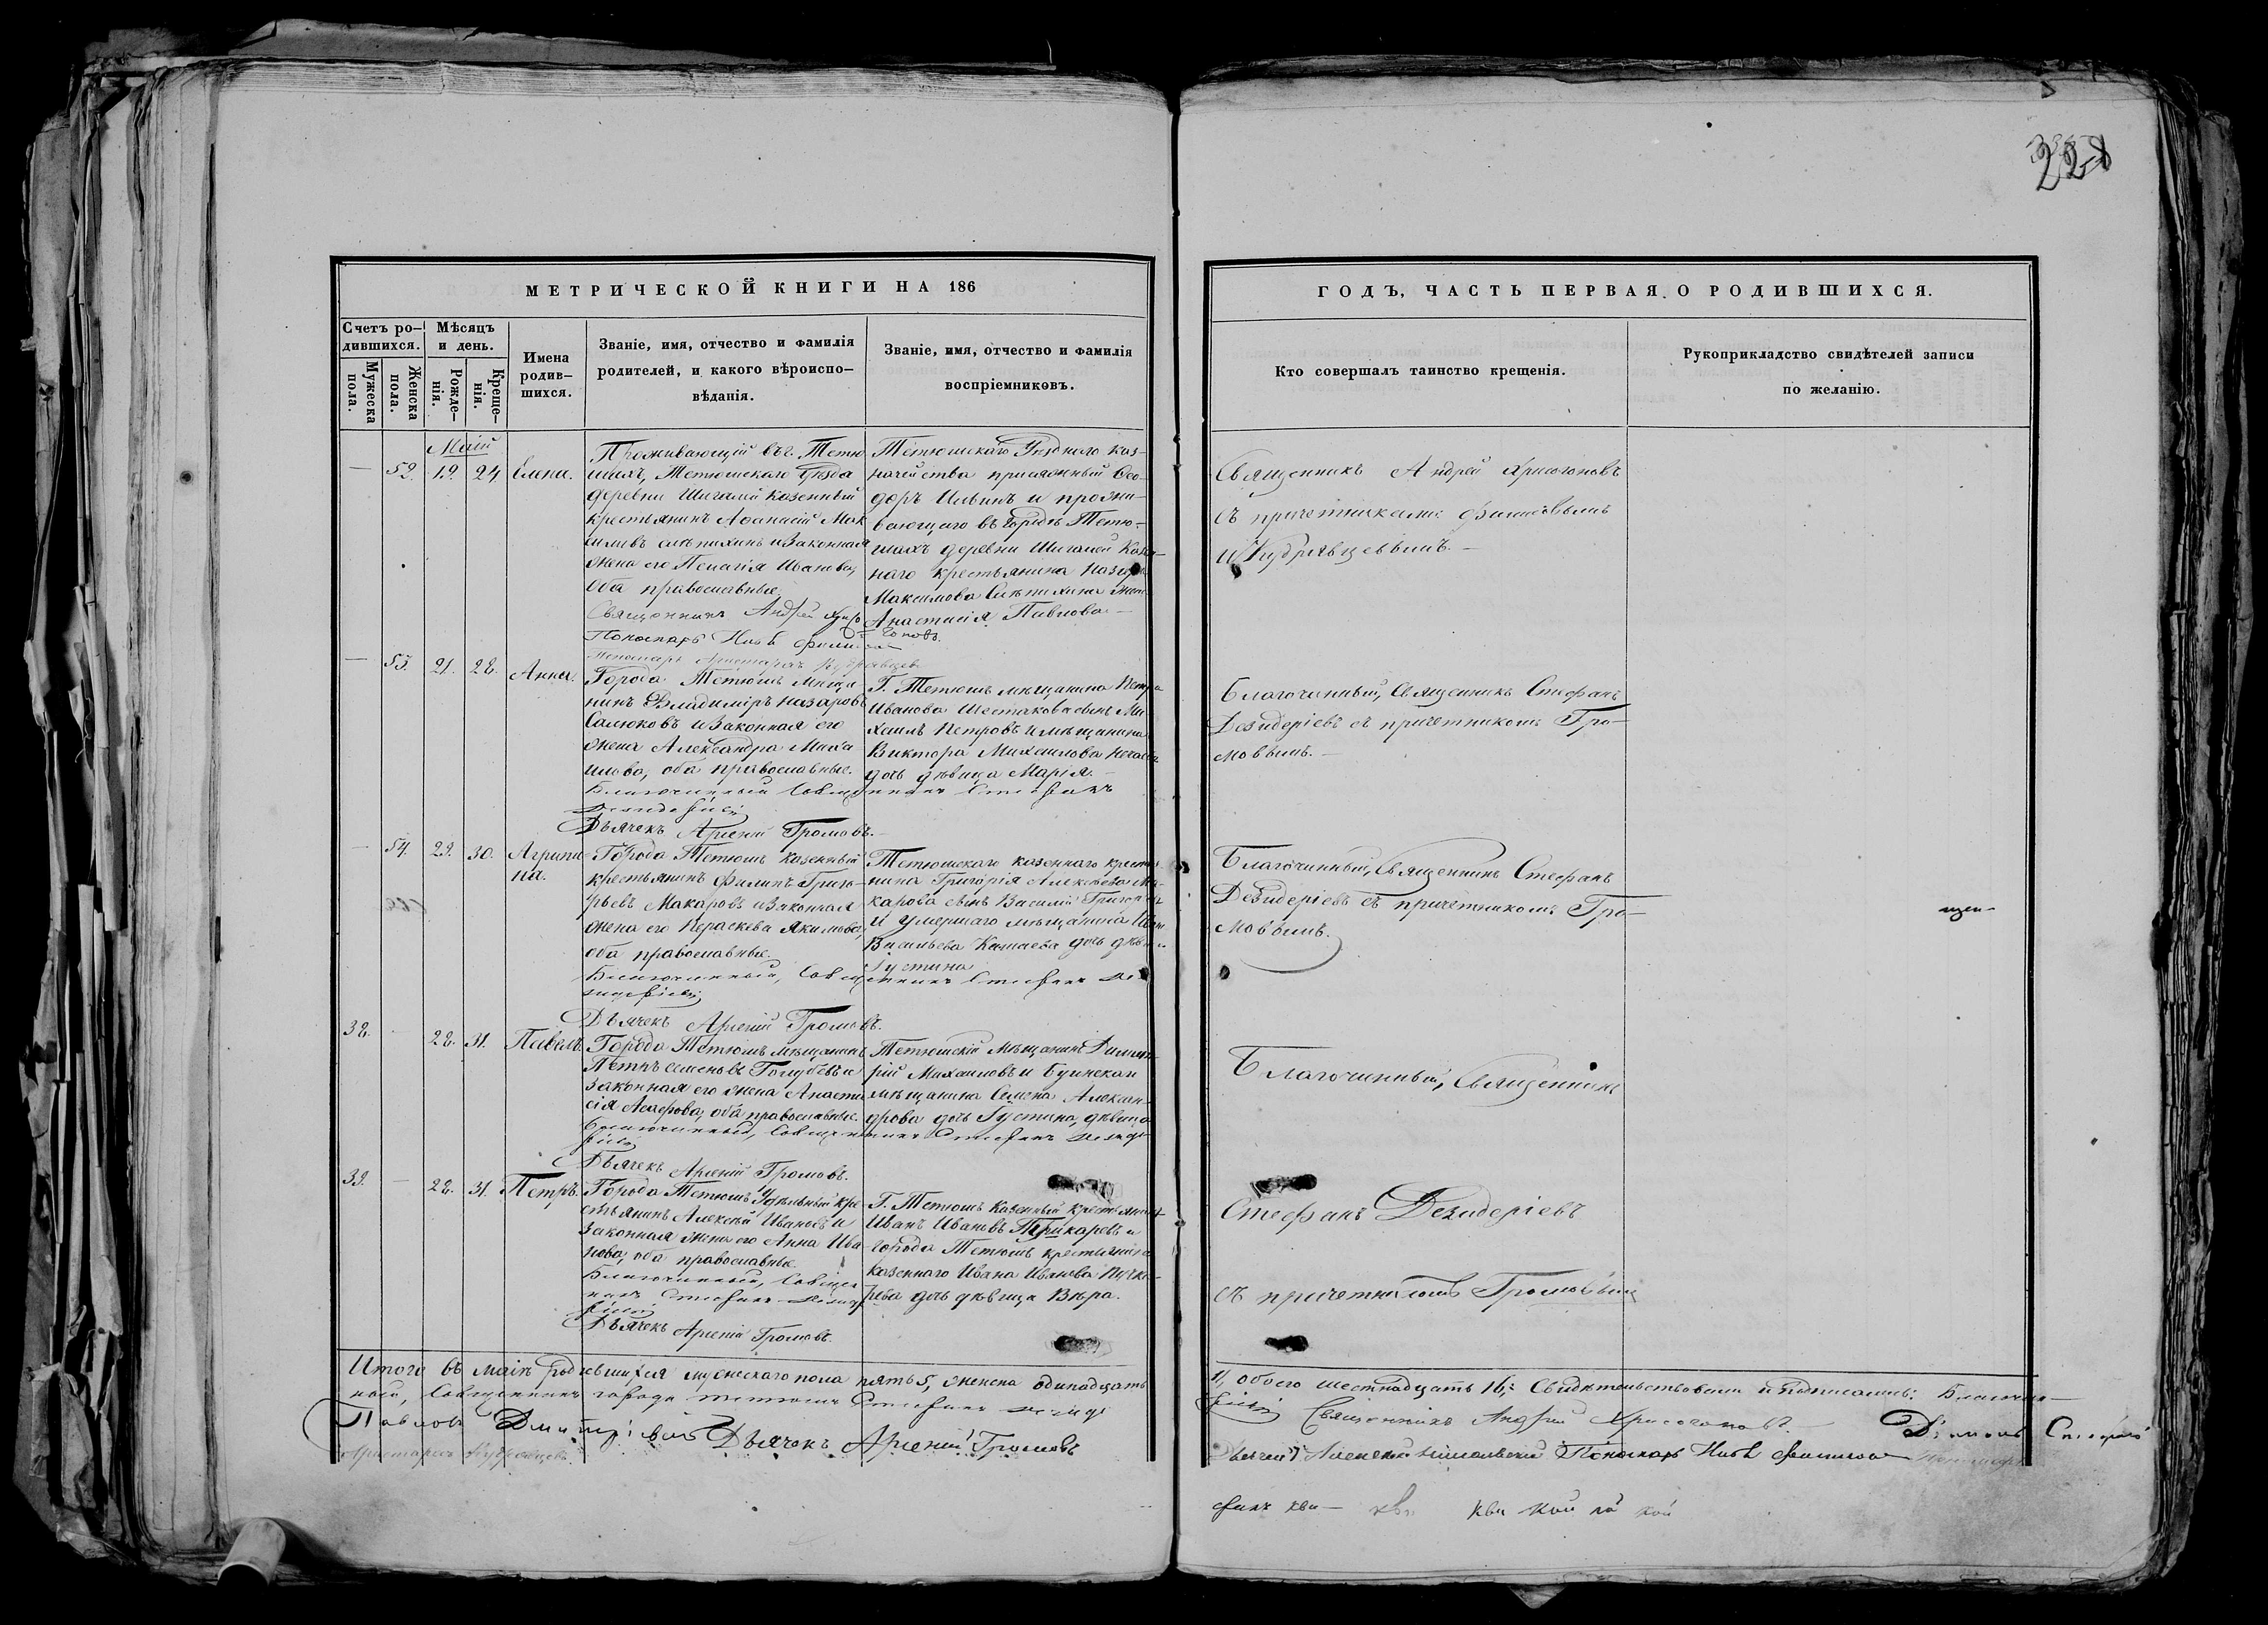 228
МЕТРИЧЕСКОЙ КНИГИ НА 186
ГОДЪ, ЧАСТЬ ПЕРВАЯ О РОДИВШИХСЯ.
Счетъ ро-
дившихся.
Мужеска
пола.
Женска
пола.
Мѣсяцъ
и день.
Рожде-
нія.
Креще-
нія.
Имена
родив-
шихся.
Званіе, имя, отчество и фамилія
родителей, и какого вѣроиспо-
вѣданія.
Званіе, имя, отчество и фамилія
воспріемниковъ.
Кто совершалъ таинство крещенія.
Рукоприкладство свидѣтелей записи
по желанію.
Маій
— 52. 19. 24 Елена.
Проживающій въ г. Тетю
шахъ, Тетюшскаго Уѣзда
деревни Шигалей Казенный
крестьянинъ Аѳанасій Мак
симовъ Слѣпихинъ и Законная
жена его Пелагія Иванова,
оба православные.
Священникъ Андрей Хрисо
гоновъ.
Пономарь Філи
Пономарь Аристархъ Кудрявцевъ
Тетюшскаго Уѣзднаго каз-
начейства присяжный Ѳео-
доръ Ильинъ и прожи-
вающаго въ городѣ Тетю-
шахъ деревни Шигалей Казен-
наго крестьянина Назара
Максимова Слѣпихина жена
Анастасія Павлова —
Священникъ Андрей Хрисогоновъ
съ причетниками Филиповымъ
и Кудрявцевымъ. —
— 53. 21. 28. Анна.
Города Тетюшъ мѣща
нинъ Владиміръ Назаровъ
Салюковъ и Законная его
жена Александра Миха
илова, оба православные.
Благочинный Священникъ Стефанъ
Дезидеріевъ
Дьячекъ Арсеній Громовъ.
Г. Тетюшъ мѣщанина Петра
Иванова Шестакова сынъ Ми
хаилъ Петровъ и мѣщанина
Виктора Михаилова
дочь дѣвица Марія. —
Благочинный, Священникъ Стефанъ
Дезидеріевъ съ причетникомъ Гро-
мовымъ. —
— 54. 29. 30. Агрипи
на.
Города Тетюшъ казенный
крестьянинъ Филипъ Григо-
рьевъ Макаровъ и Законная
жена его Параскева Якимова,
оба православные.
Благочинный, Священникъ Стефанъ Де
зидеріевъ
Дьячекъ Арсеній Громовъ.
Тетюшскаго казеннаго крестья
нина Григорія Алексѣева Ма-
карова сынъ Василій Григорьевъ
и умершаго мѣщанина Ивана
Васильева дочь дѣвица
Густина
Благочинный, Священникъ Стефанъ
Дезидеріевъ съ причетникомъ Гро-
мовымъ.
38. — 28. 31. Павелъ.
Города Тетюшъ мѣщанинъ
Петръ Семеновъ Голубевъ и
законная его жена Анаста
сія оба православные.
Благочинный, Священникъ Стефанъ Дезиде
ріевъ
Дьячекъ Арсеній Громовъ.
Тетюшскій мѣщанинъ Димит-
рій Михаиловъ и Буинской
мѣщанина Семена Алексан-
дрова дочь Густина, дѣвица
Благочинный, Священникъ
39. — 28. 31. Петръ.
Города Тетюшъ Удѣльный кре
стьянинъ Алексѣй Ивановъ и
Законная жена его Анна Ива
нова, оба православные.
Благочинный, Священ
никъ Стефанъ Дезиде
ріевъ
Дьячекъ Арсеній Громовъ.
Г. Тетюшъ Казенный крестьянинъ
Иванъ Ивановъ и
города Тетюшъ крестьянина
казеннаго Ивана Иванова
дочь дѣвица Вѣра.
Стефанъ Дезидеріевъ
съ причетникомъ Громовымъ
Итого въ маіѣ родившихся мужескаго пола пять 5, женска одинадцать
11, обоего шестнадцать 16. Свидѣтельствовали и подписались: Благочин-
ный, Священникъ города Тетюшъ Стефанъ Дезиде
ріевъ Священникъ Андрей Хрисогоновъ. — Діаконъ
Дьячекъ Арсеній Громовъ
Пономарь
Аристархъ Кудрявцевъ.